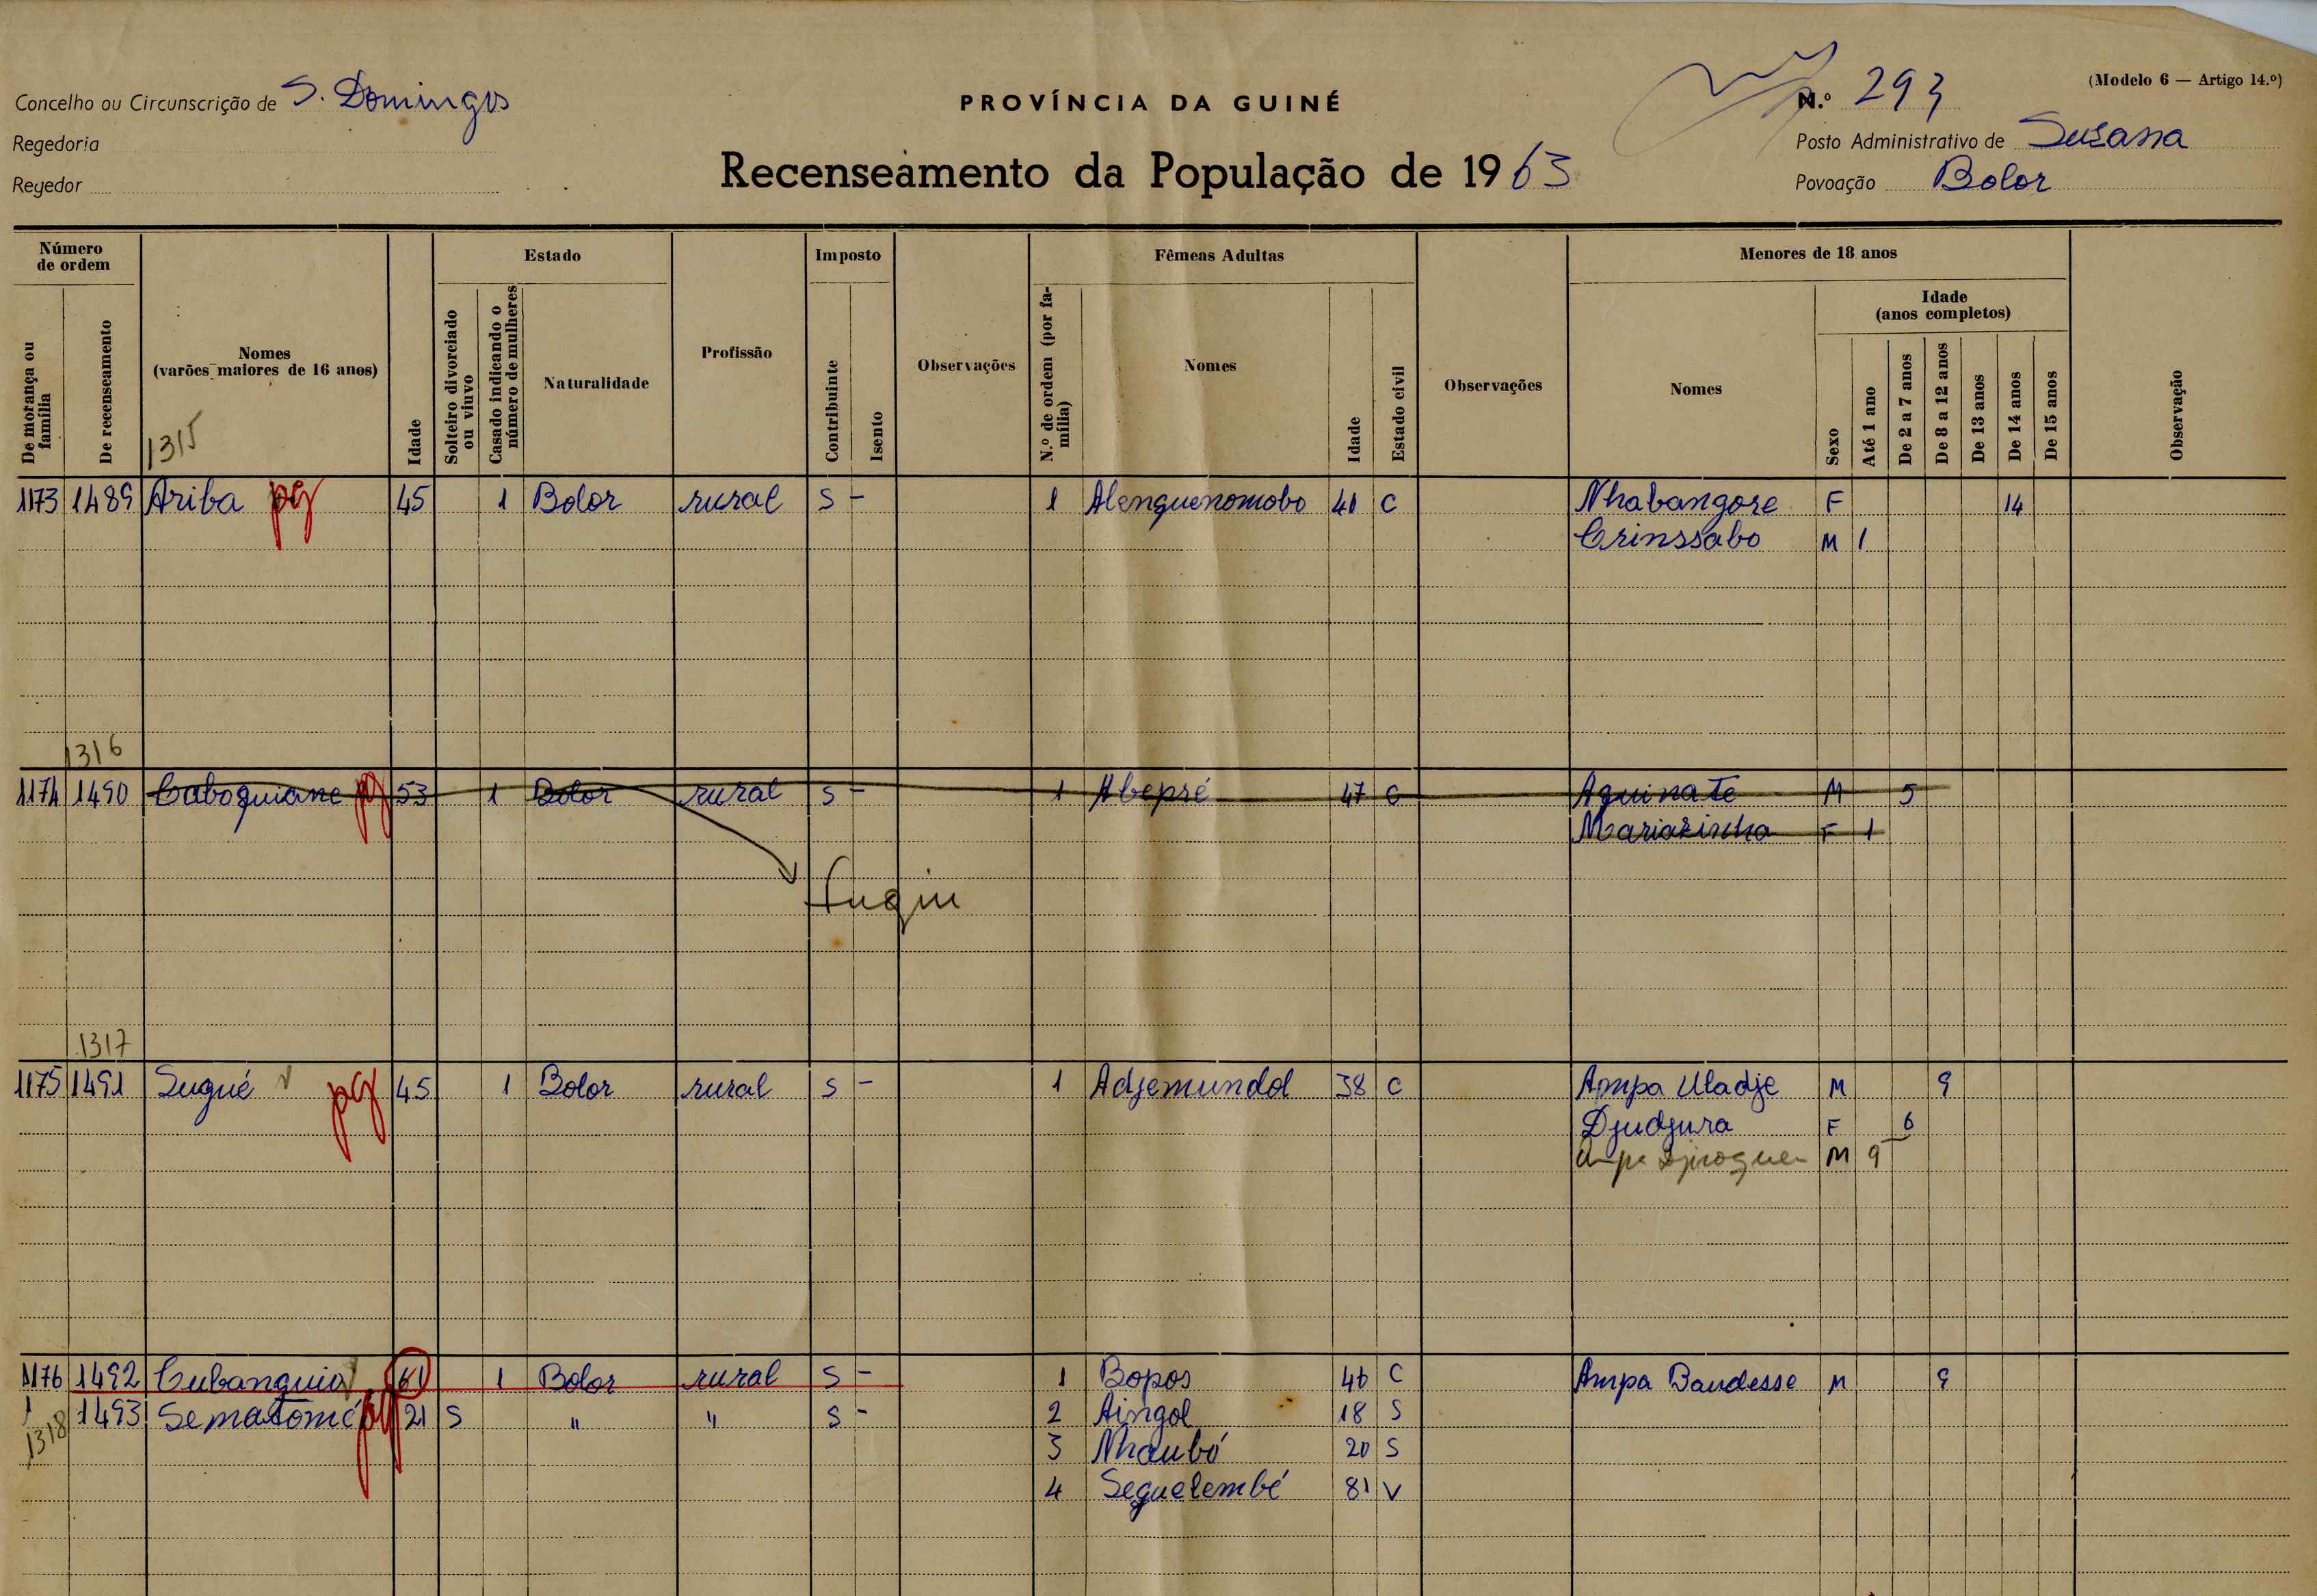 Concelho ou Circunscrição de S. Domingos
Regedoria
Regedor
PROVÍNCIA DA GUINÉ
Recenseamento da População de 1963
(Modelo 6 — Artigo 14.º)
N.º 293
Posto Administrativo de Susana
Povoação Bolor
Número de ordem
De morança ou família
De recenseamento
Nomes
(varões maiores de 16 anos)
1315
Idade
Estado
Solteiro divorciado ou viuvo
Casado indicando o número de mulheres
Naturalidade
Profissão
Imposto
Contribuinte
Isento
Observações
Fêmeas Adultas
N.º de ordem (por família)
Nomes
Idade
Estado civil
Observações
Menores de 18 anos
Nomes
Sexo
Idade
(anos completos)
Até 1 ano
De 2 a 7 anos
De 8 a 12 anos
De 13 anos
De 14 anos
De 15 anos
Observação
1173 1489 Ariba pg 45 1 Bolor rural S - 1 Alenguenomobo 41 C Nhabangore F 14
Crinssabo M 1
1316
1174 1490 Caboguiane pg 53 1 Bolor rural S - 1 Abepsé 47 C Aquinate M 5
Mariazinha F 1
1317
1175 1491 Sugué pg 45 1 Bolor rural S - 1 Adjemundol 38 C Ampa Uladje M 9
Djudjura F 6
M 9
1176 1492 Cubanguio 61 1 Bolor rural S - 1 Bopos 46 C Ampa Baudesse M 9
1493 Sematomé pg 21 S " " S - 2 Aingol 18 S
1318 3 Nhaubó 20 S
4 Seguelembé 81 V